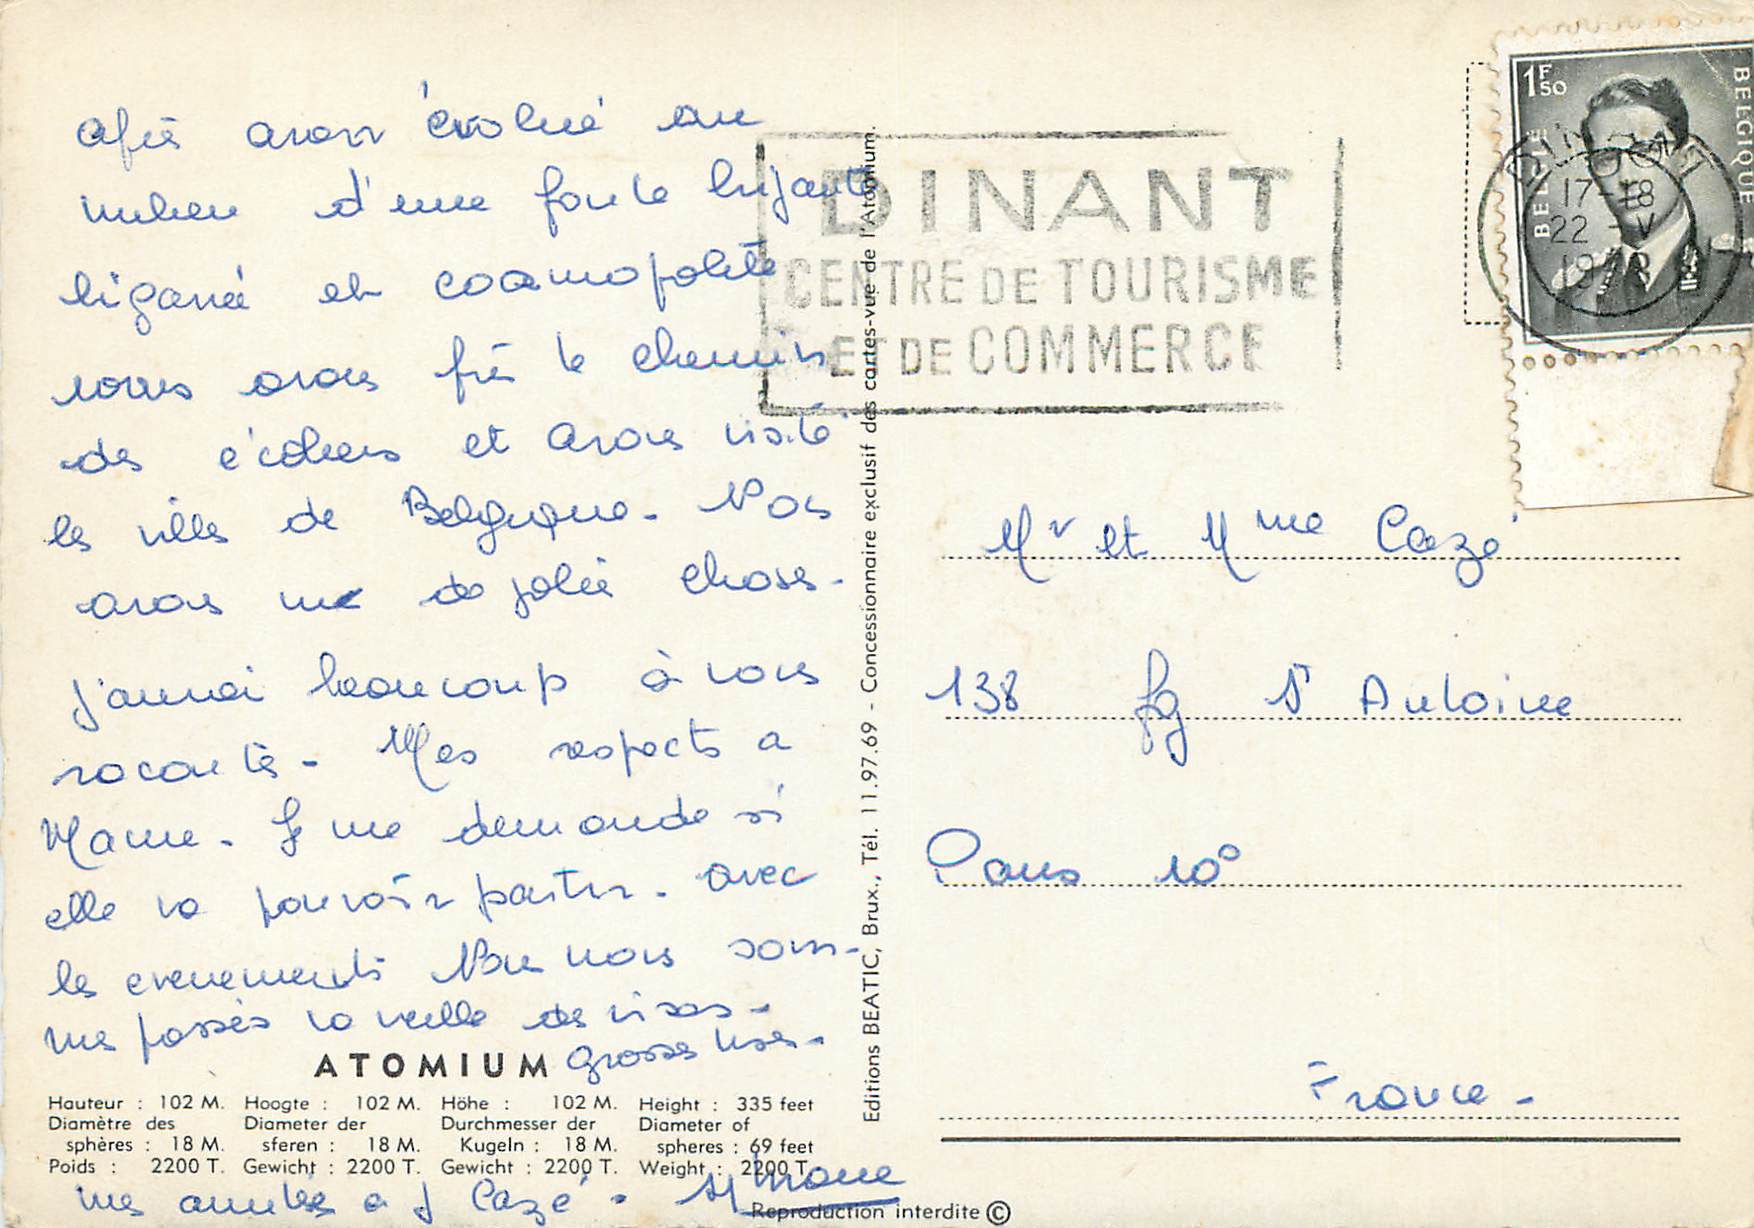 Après avoir évolué au
milieu d'une foule bruyante
bigarrée et cosmopolite
nous avons pris le chemin
des écoliers et avons visité
les villes de Belgique. Nous
avons vu de jolies choses.
J'aurai beaucoup à vous
raconter. Mes respects a
Mame. Je me demande si
elle va pouvoir partir. avec
les evenements Nous nous som-
mes passés la veille des visas.
grosses bises.
mes amitiés a J Cazé. Simone
ATOMIUM
Hauteur : 102 M. Hoogte : 102 M. Höhe : 102 M. Height : 335 feet
Diamètre des Diameter der Durchmesser der Diameter of
sphères : 18 M. sferen : 18 M. Kugeln : 18 M. spheres : 69 feet
Poids : 2200 T. Gewicht : 2200 T. Gewicht : 2200 T. Weight : 2200 T.
Reproduction interdite ©
Editions BEATIC, Brux., Tél. 11.97.69 - Concessionnaire exclusif des cartes-vue de l'Atomium.
DINANT
CENTRE DE TOURISME
ET DE COMMERCE
1F50
BELGIE BELGIQUE
DINANT
17-18
22 -V
Mr et Mme Cazé
138 fg St Antoine
Paris 10°
France -